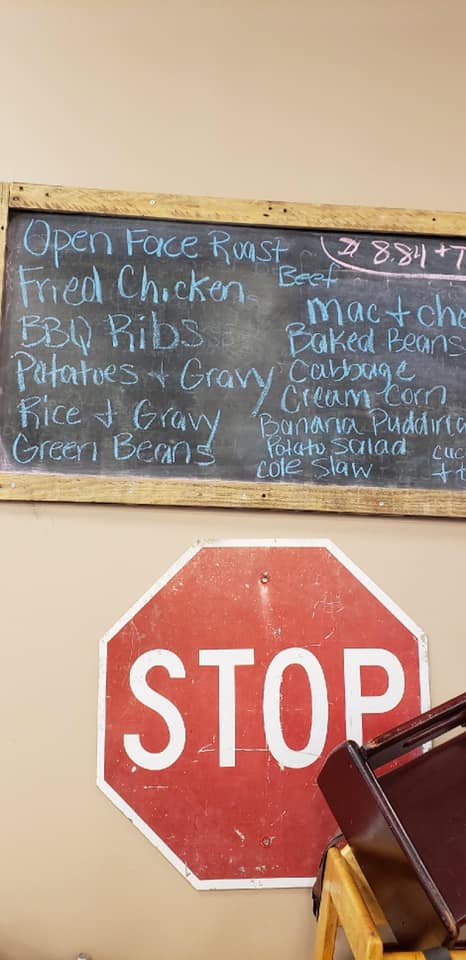 Open Face Roast Beef
Fried Chicken
BBQ Ribs
Potatoes + Gravy
Rice + Gravy
Green Beans
$ 8.84 + T
Mac + che
Baked Beans
Cabbage
Cream Corn
Banana Pudding
Potato Salad
Cole Slaw
cuc
+ t
STOP